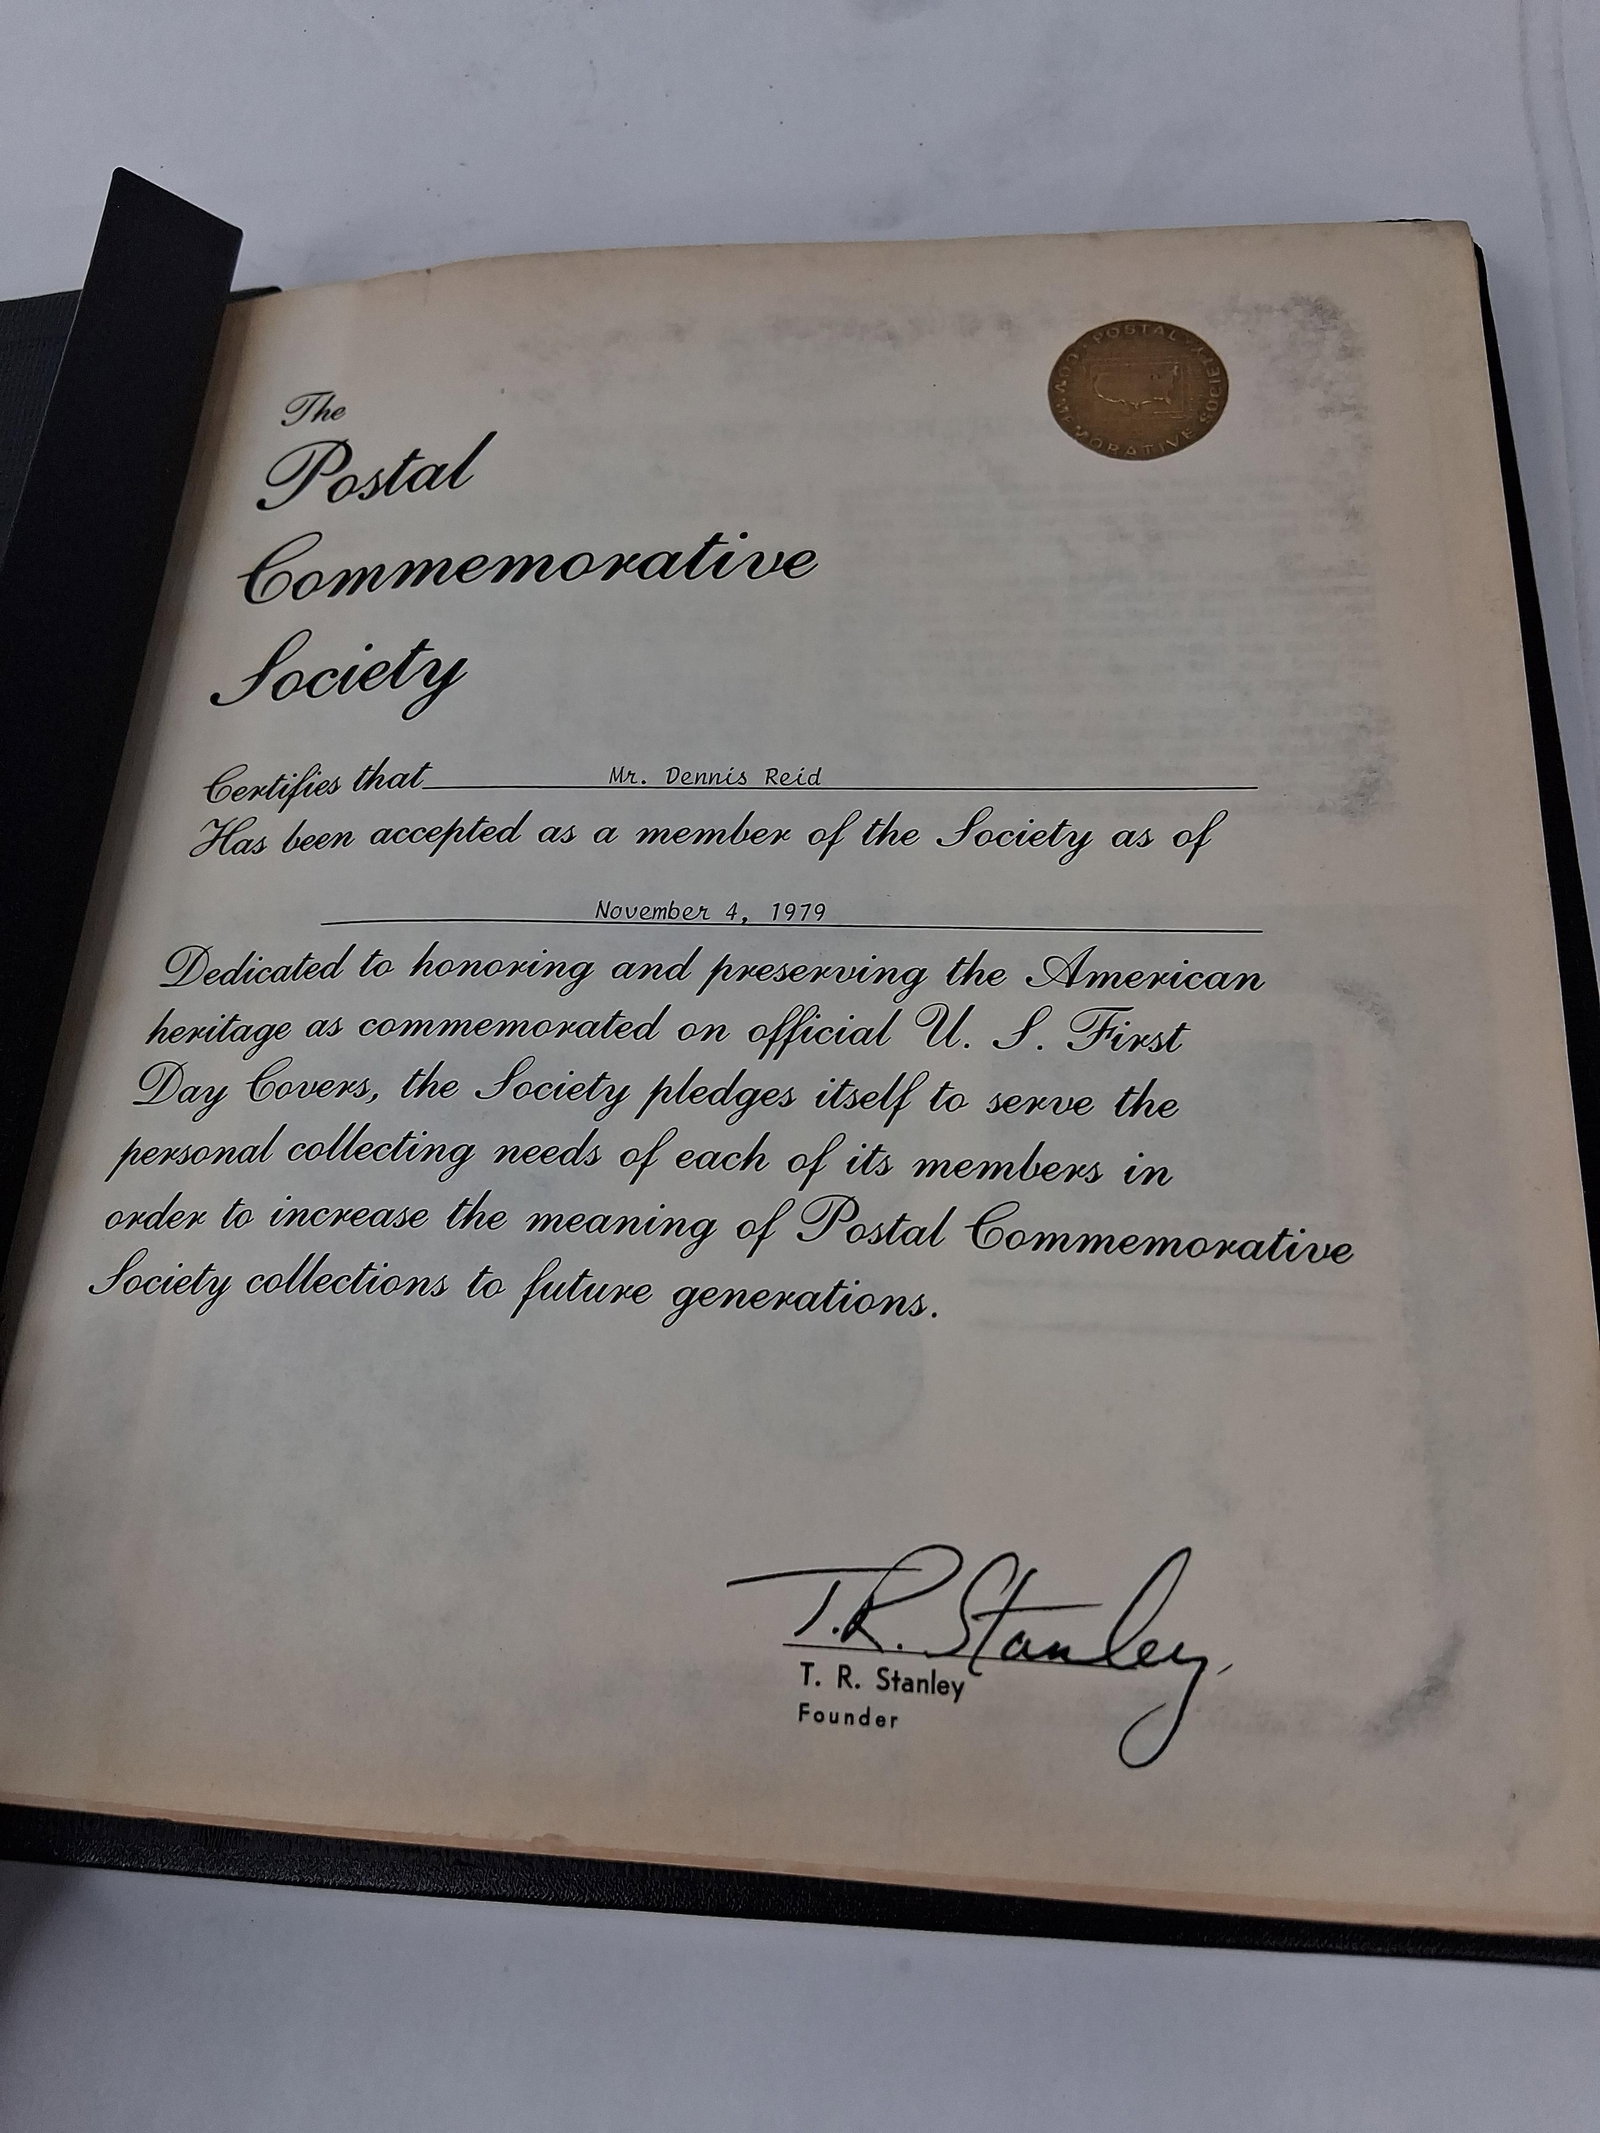 The
Postal
Commemorative
Society
POSTAL COMMEMORATIVE SOCIETY
Certifies that Mr. Dennis Reid
Has been accepted as a member of the Society as of
November 4, 1979
Dedicated to honoring and preserving the American
heritage as commemorated on official U. S. First
Day Covers, the Society pledges itself to serve the
personal collecting needs of each of its members in
order to increase the meaning of Postal Commemorative
Society collections to future generations.
T.R. Stanley
T. R. Stanley
Founder